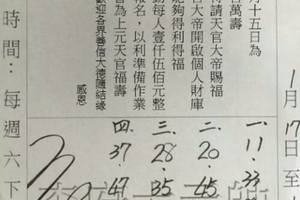 1月17日至
月十五日為
百萬壽
得請天官大帝賜福
官大帝開啟個人財庫
能夠得利得福
動每人壹仟伍佰元整
報名,以利準備作業
皆為上元天官福壽
歡迎各界善信大德隨結緣
感恩
時間:每週六下
一.11.33
二.20.45
三.28.35
四.37.47